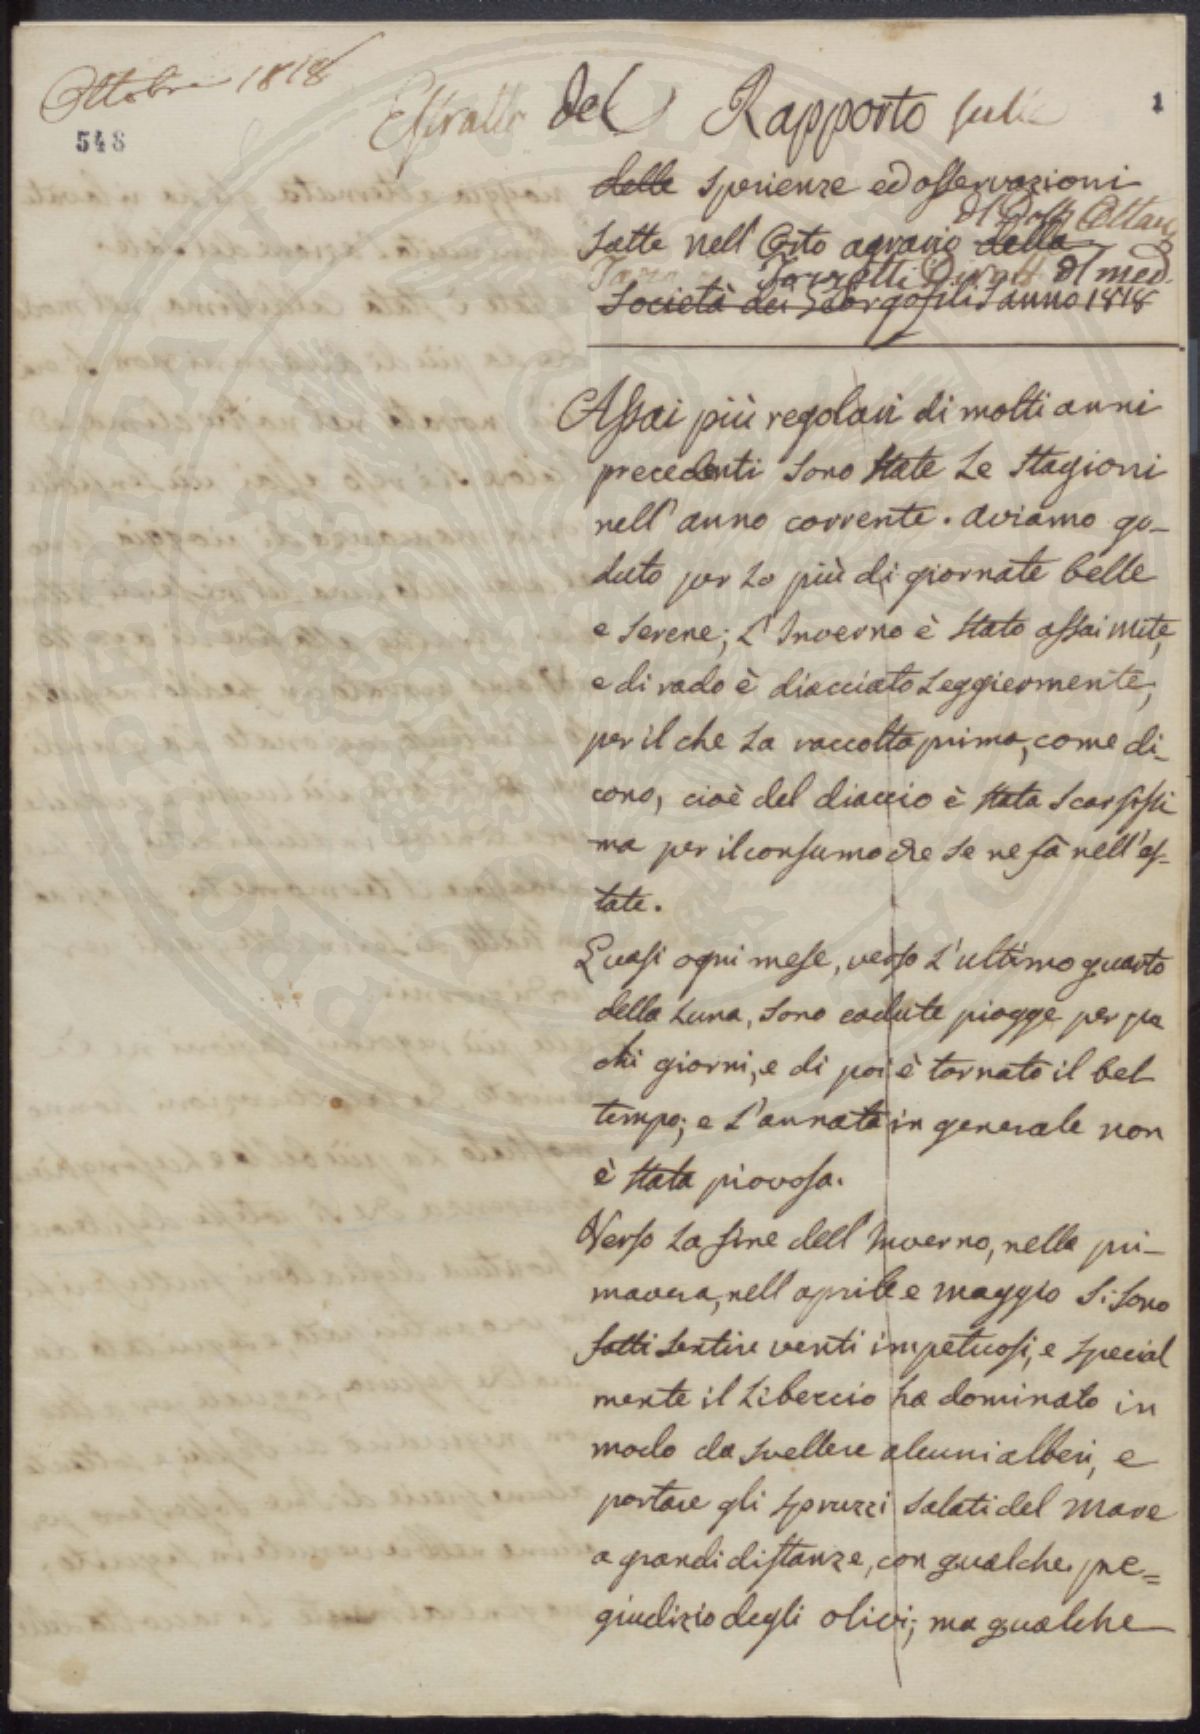 Ottobre 1818
548
1
Estratto del Rapporto sulle
delle Sperienze ed osservazioni
del Dott. Ottav.
fatte nell'Orto agrario della
Tozzetti Dirett. del med.
Società dei Georgofili l'anno 1818
Assai più regolari di molti anni
precedenti sono state le stagioni
nell'anno corrente. aviamo go-
duto per lo più di giornate belle
e serene; L'Inverno è stato assai mite,
e di rado è diacciato leggiermente,
per il che la raccolta prima, come di-
cono, cioè del diaccio è stata scarsissi
ma per il consumo che se ne fà nell'es-
tate.
Quasi ogni mese, verso l'ultimo quarto
della Luna, sono cadute piogge per po
chi giorni, e di poi è tornato il bel
tempo; e l'annata in generale non
è stata piovosa.
Verso la fine dell'Inverno, nella pri-
mavera, nell'aprile e maggio si sono
fatti sentire venti impetuosi, e special
mente il Libeccio ha dominato in
modo da svellere alcuni alberi, e
portare gli spruzzi salati del mare
a grandi distanze, con qualche pre=
giudizio degli olivi; ma qualche